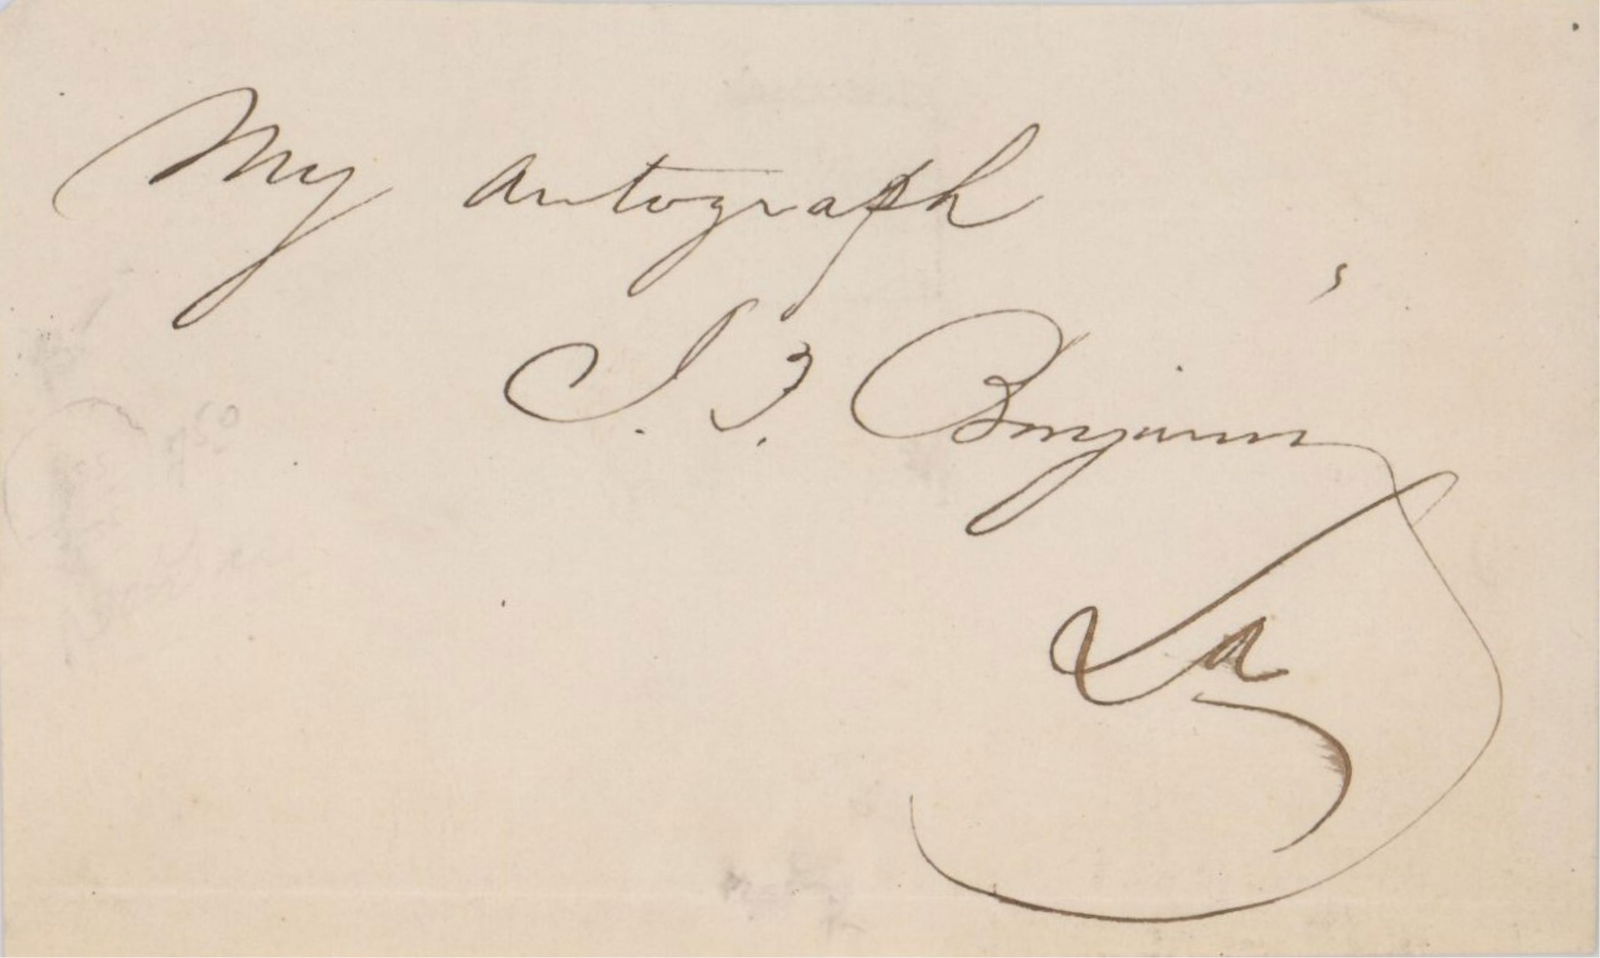 My autograph
J. P. Benjamin
La